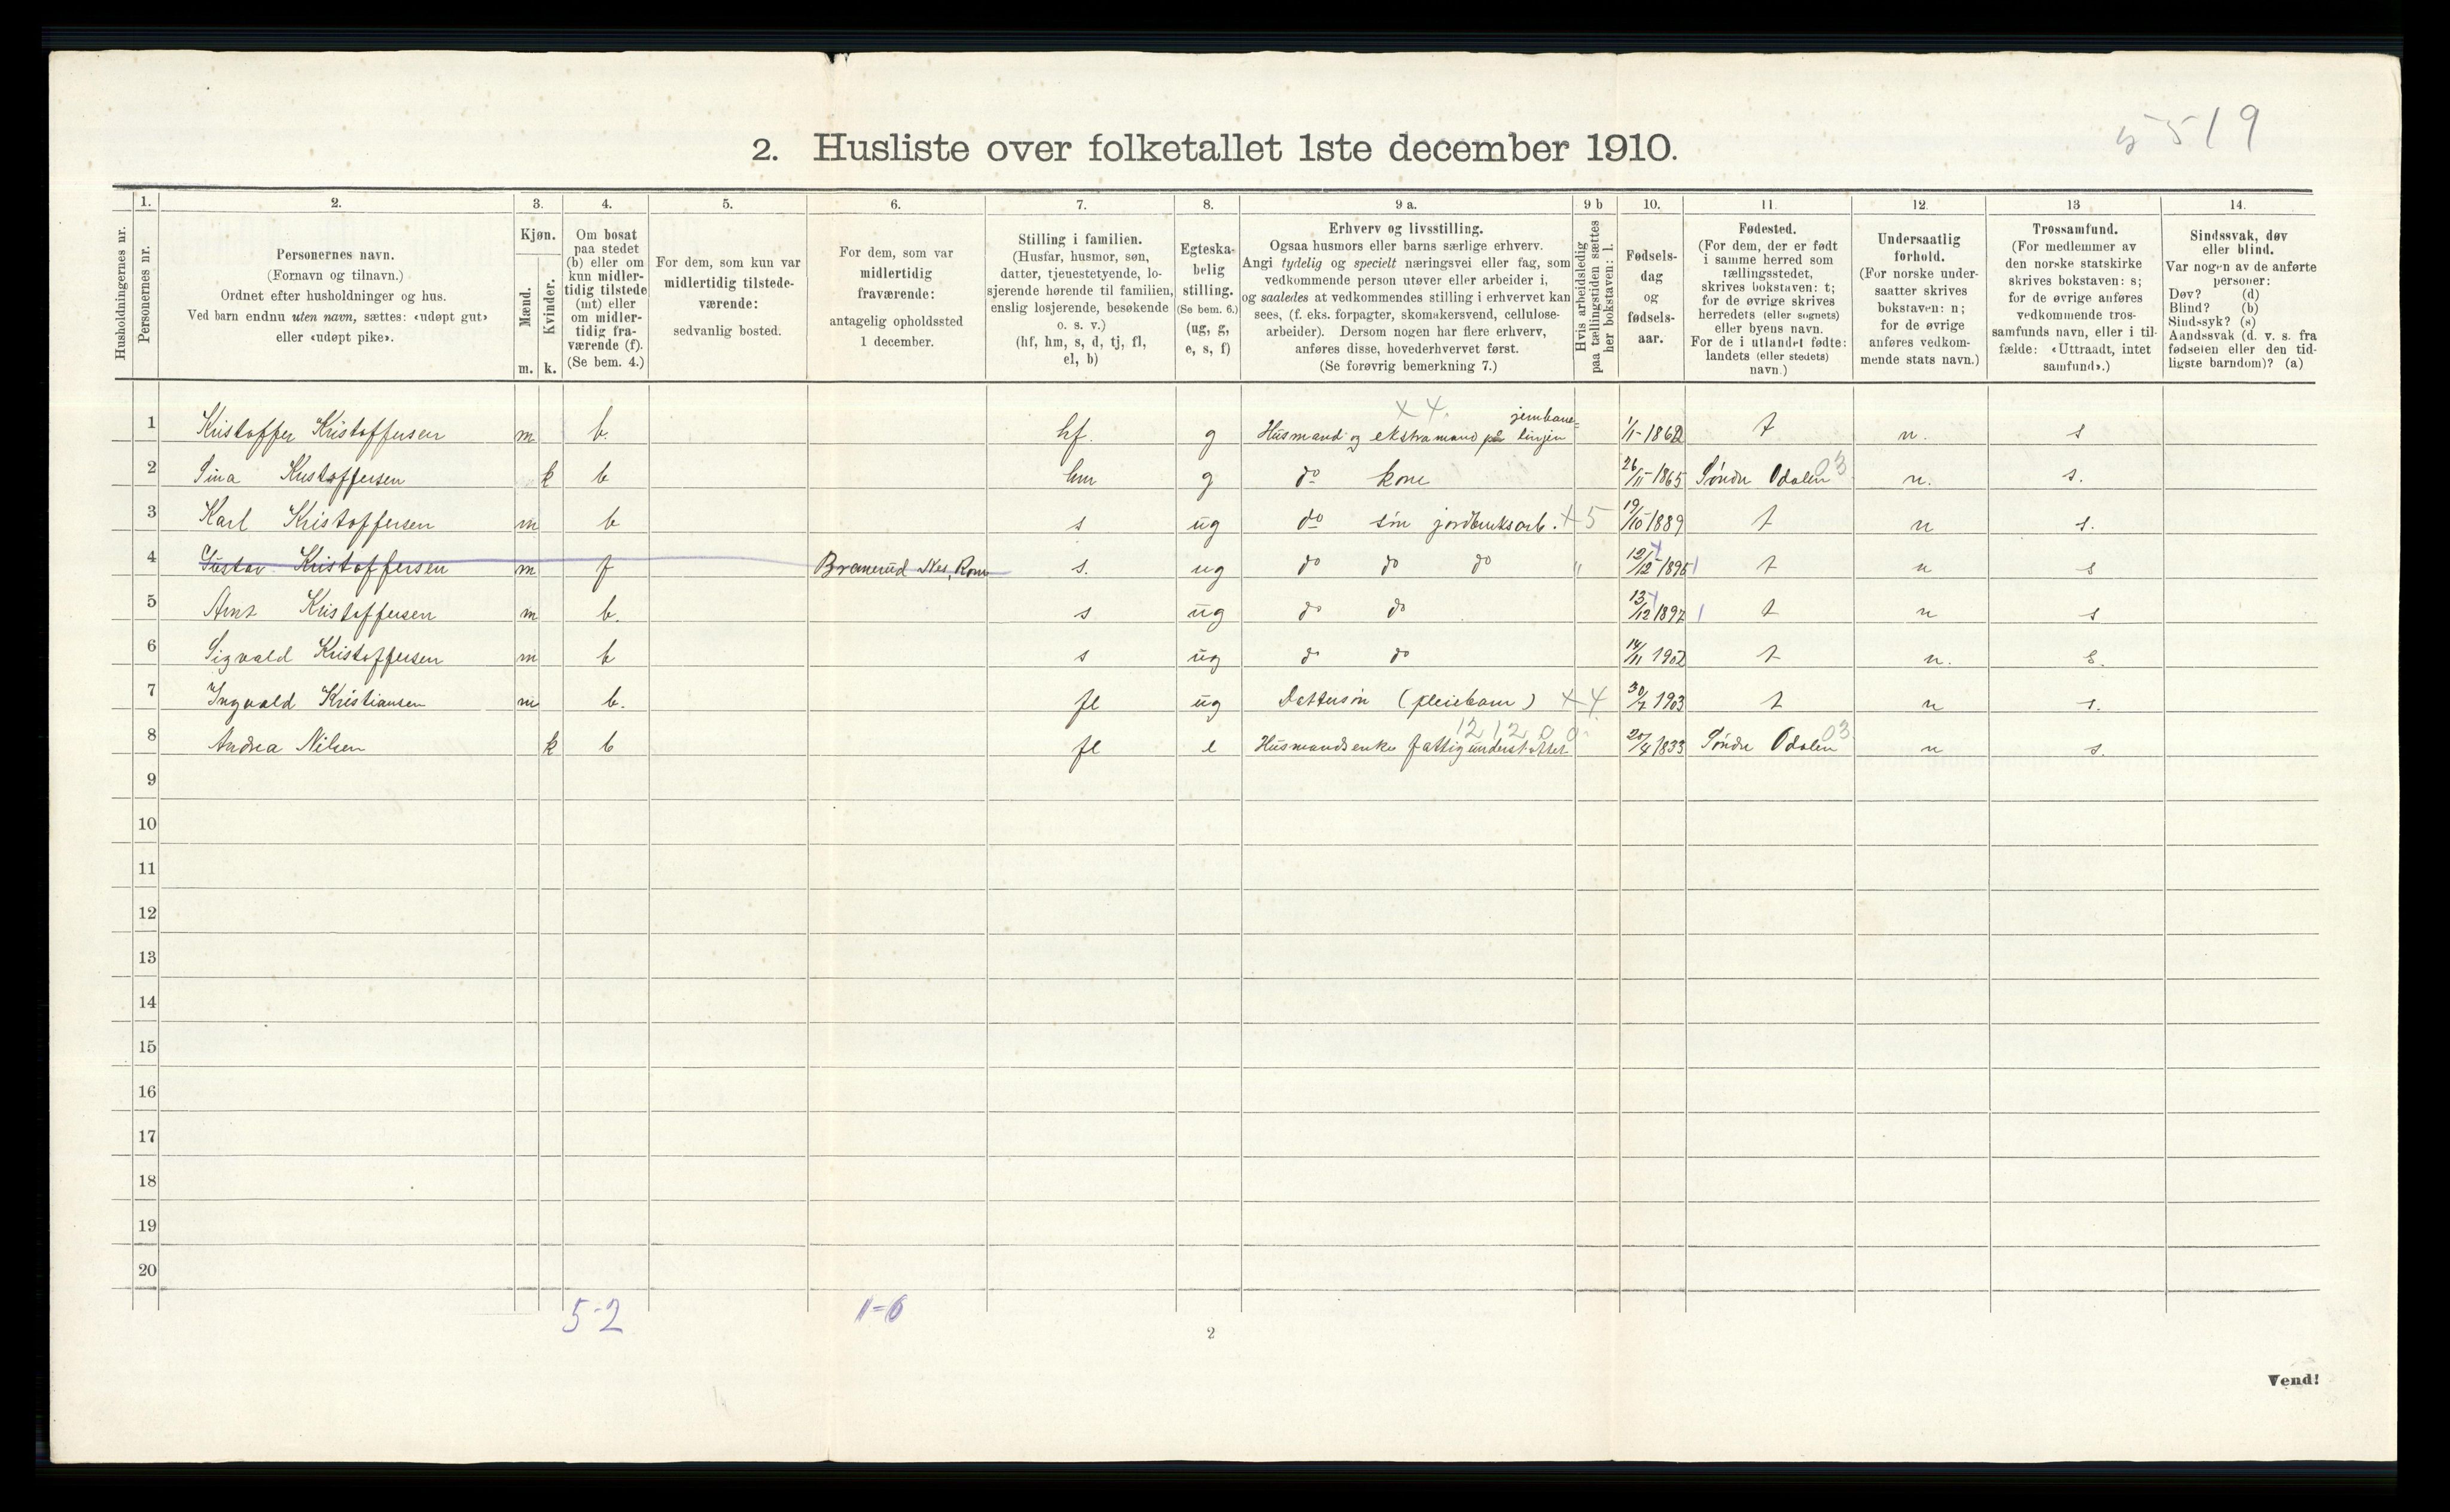 5519
2. Husliste over folketallet 1ste december 1910.
Husholdningernes nr.
1. Personernes nr.
2. Personernes navn.
(Fornavn og tilnavn.)
Ordnet efter husholdninger og hus.
Ved barn endnu uten navn, sættes: «udøpt gut»
eller «udøpt pike».
3. Kjøn.
Mænd. m.
Kvinder. k.
4. Om bosat
paa stedet
(b) eller om
kun midler-
tidig tilstede
(mt) eller
om midler-
tidig fra-
værende (f).
(Se bem. 4.)
5. For dem, som kun var
midlertidig tilstede-
værende:
sedvanlig bosted.
6. For dem, som var
midlertidig
fraværende:
antagelig opholdssted
1 december.
7. Stilling i familien.
(Husfar, husmor, søn,
datter, tjenestetyende, lo-
sjerende hørende til familien,
enslig losjerende, besøkende
o. s. v.)
(hf, hm, s, d, tj, fl,
el, b)
8. Egteska-
belig
stilling.
(Se bem. 6.)
(ug, g,
e, s, f)
9 a. Erhverv og livsstilling.
Ogsaa husmors eller barns særlige erhverv.
Angi tydelig og specielt næringsvei eller fag, som
vedkommende person utøver eller arbeider i,
og saaledes at vedkommendes stilling i erhvervet kan
sees, (f. eks. forpagter, skomakersvend, cellulose-
arbeider). Dersom nogen har flere erhverv,
anføres disse, hovederhvervet først.
(Se forøvrig bemerkning 7.)
9 b Hvis arbeidsledig
paa tællingstiden sættes
her bokstaven: l.
10. Fødsels-
dag
og
fødsels-
aar.
11. Fødested.
(For dem, der er født
i samme herred som
tællingsstedet,
skrives bokstaven: t;
for de øvrige skrives
herredets (eller sognets)
eller byens navn.
For de i utlandet fødte:
landets (eller stedets)
navn.)
12. Undersaatlig
forhold.
(For norske under-
saatter skrives
bokstaven: n;
for de øvrige
anføres vedkom-
mende stats navn.)
13 Trossamfund.
(For medlemmer av
den norske statskirke
skrives bokstaven: s;
for de øvrige anføres
vedkommende tros-
samfunds navn, eller i til-
fælde: «Uttraadt, intet
samfund».)
14. Sindssvak, døv
eller blind.
Var nogen av de anførte
personer:
Døv? (d)
Blind? (b)
Sindssyk? (s)
Aandssvak (d. v. s. fra
fødselen eller den tid-
ligste barndom)? (a)
x 4. jernbane=
1 Kristoffer Kristoffersen m b. hf. g Husmand og ekstramand på linjen 1/1-1862 t n. s
2 Sina Kristoffersen k b hm g do kone 26/11-1865 Søndre Odalen 03 n. s.
3 Karl Kristoffersen m b s ug do søn jordbruksarb. x5 19/10 1889 t n s.
4 Gustav Kristoffersen m f Branerud Nes, Rom s. ug do do do " 12/12-1895 t n s
5 Arnt Kristoffersen m b. s ug do do 13/12 1897 t n s
6 Sigvald Kristoffersen m b s ug do do 14/11 1902 t n. s.
7 Ingvald Kristiansen m b. fl ug Dattersøn (pleiebarn) x4 30/7 1903 t n s.
12 12 0 0
8 Andrea Nilsen k b fl e Husmandsenke fattigunderstøttet 20/4 1833 Søndre Odalen 03 n s.
9
10
11
12
13
14
15
16
17
18
19
20
5-2 1=6
2
Vend!